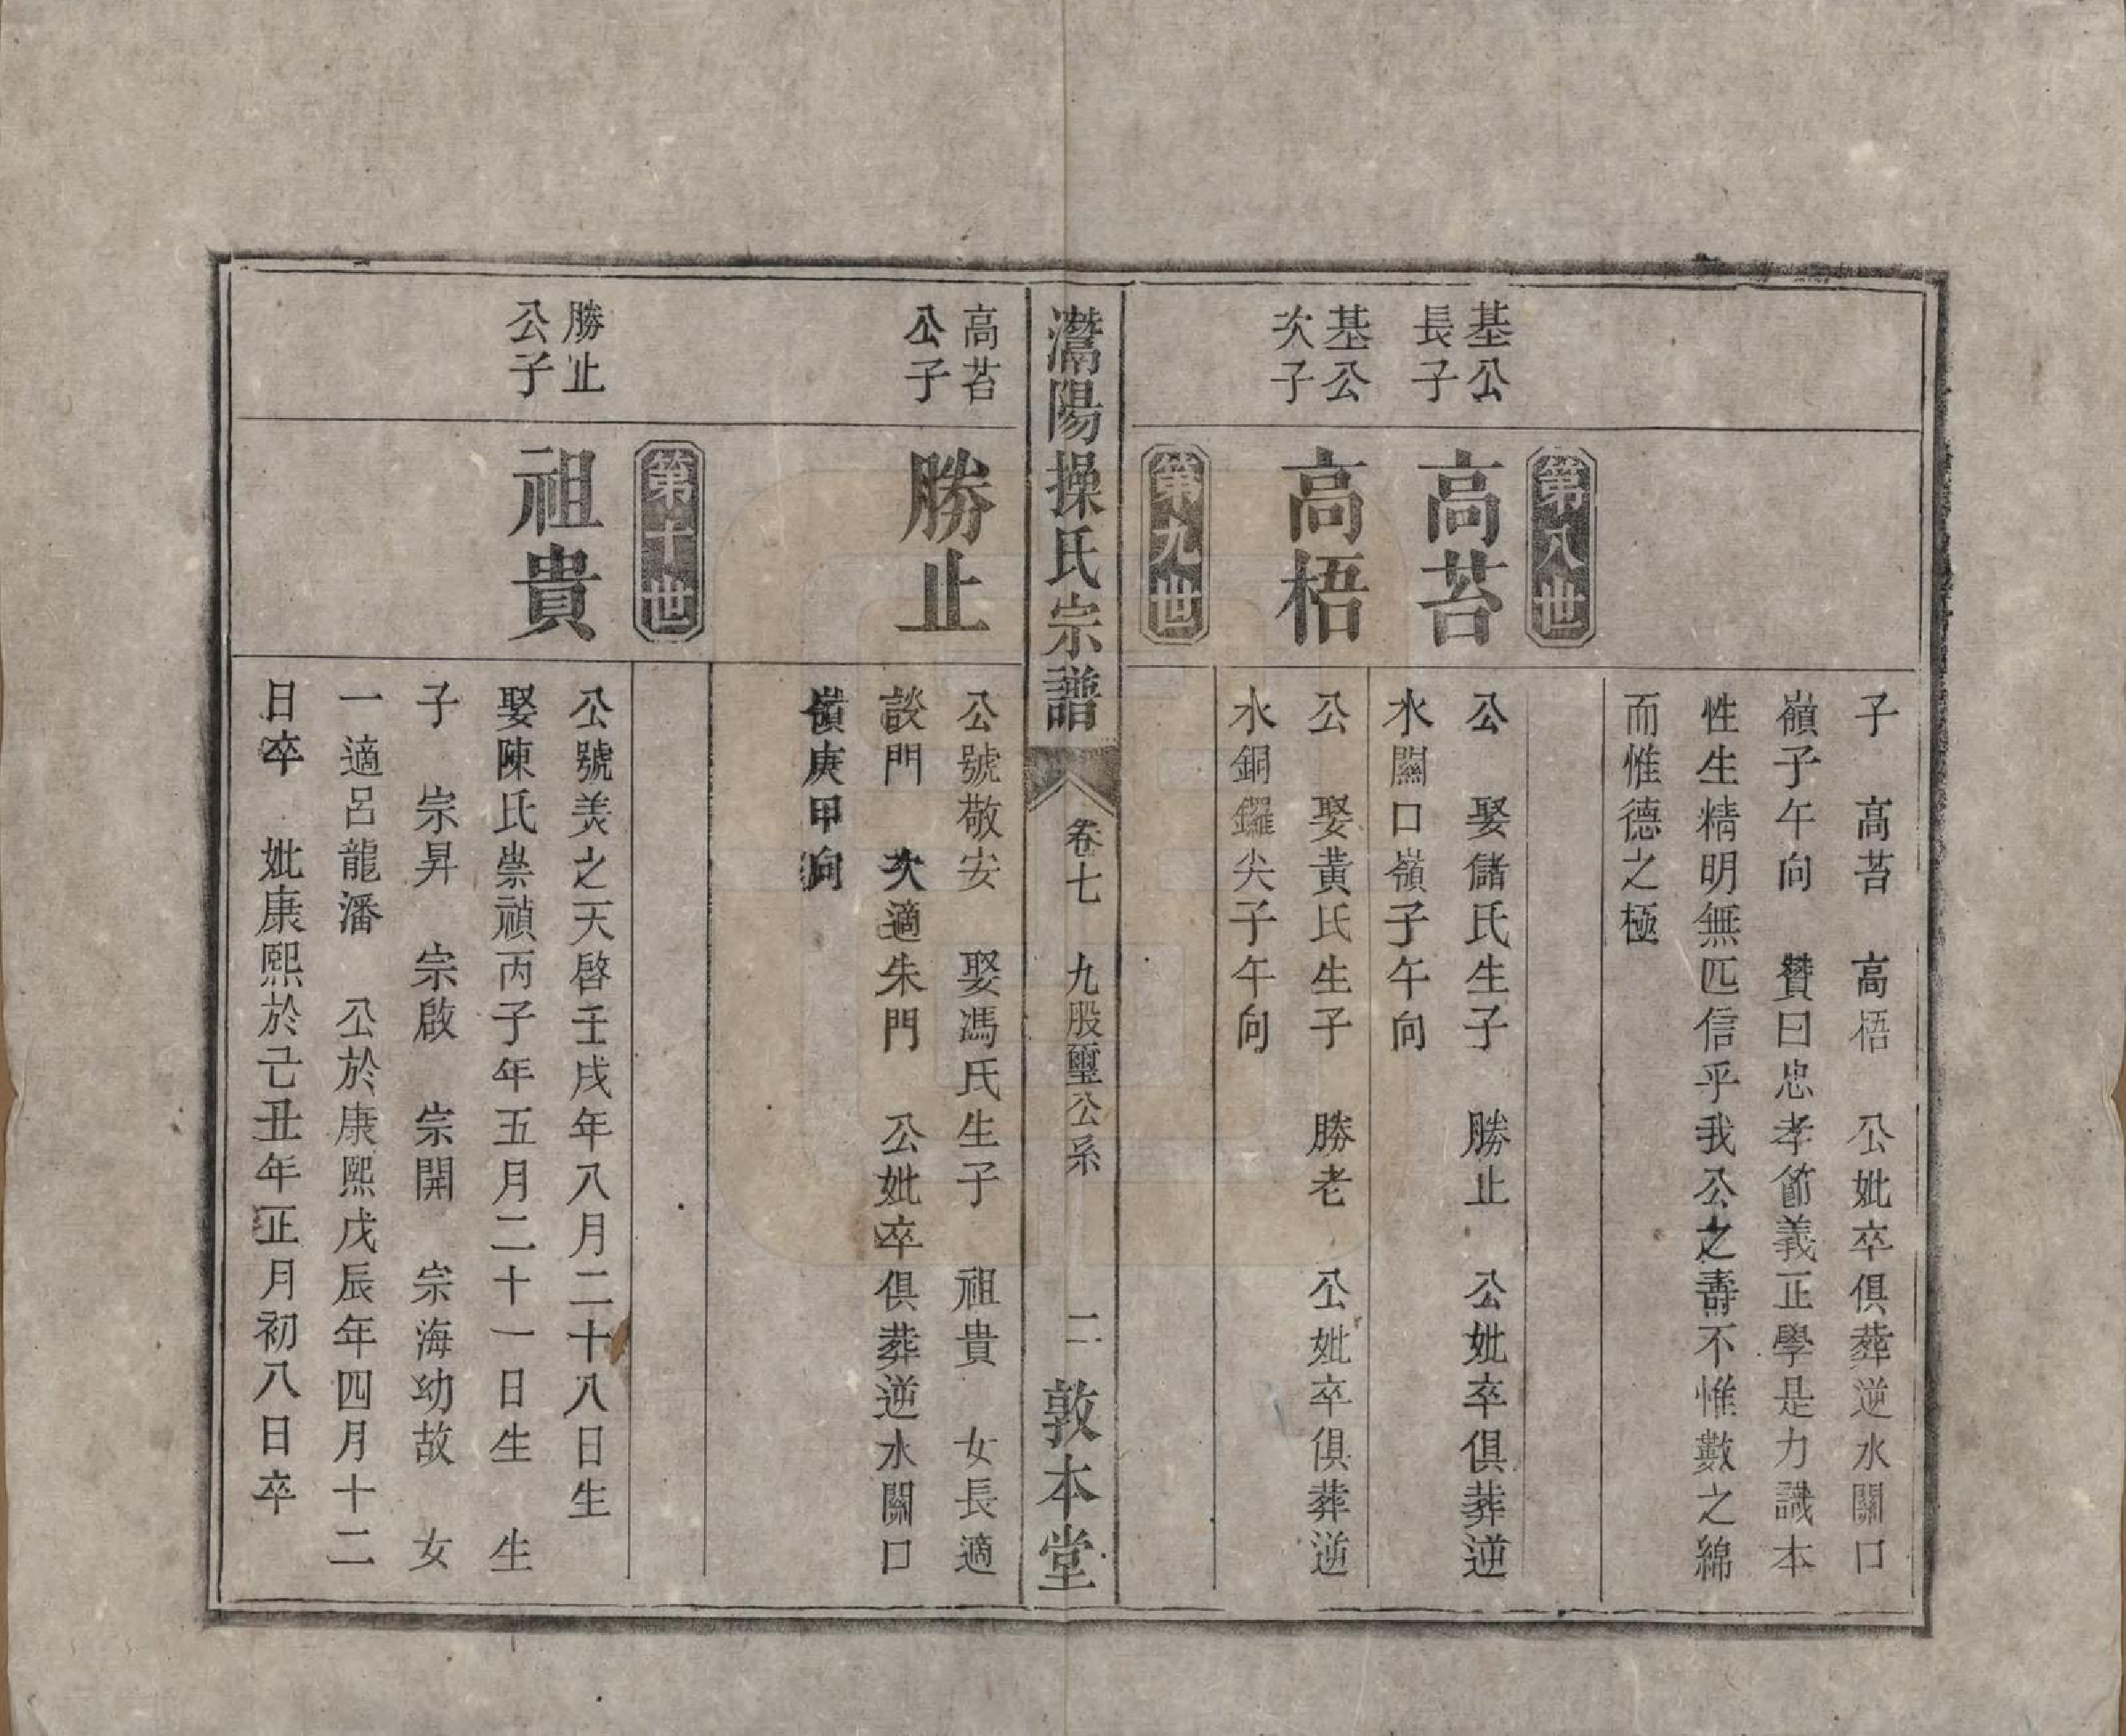 子　高苔　高梧　公妣卒俱葬逆水關口
嶺子午向　贊曰忠孝節義正學是力識本
性生精明無匹信乎我公之壽不惟數之綿
而惟德之極
第八世
基公
長子
高苔
公　娶儲氏生子　勝止　公妣卒俱葬逆
水關口嶺子午向
基公
次子
高梧
公　娶黃氏生子　勝老　公妣卒俱葬逆
水銅鑼尖子午向
第九世
灊陽操氏宗譜
卷七　九股璽公系　二
敦本堂
高苔
公子
勝止
公號敬安　娶馮氏生子　祖貴　女長適
談門　次適朱門　公妣卒俱葬逆水關口
嶺庚甲向
第十世
勝止
公子
祖貴
公號美之天啓壬戌年八月二十八日生
娶陳氏崇禎丙子年五月二十一日生　生
子　宗昇　宗啟　宗開　宗海幼故　女
一適呂龍潘　公於康熙戊辰年四月十二
日卒　妣康熙於己丑年正月初八日卒